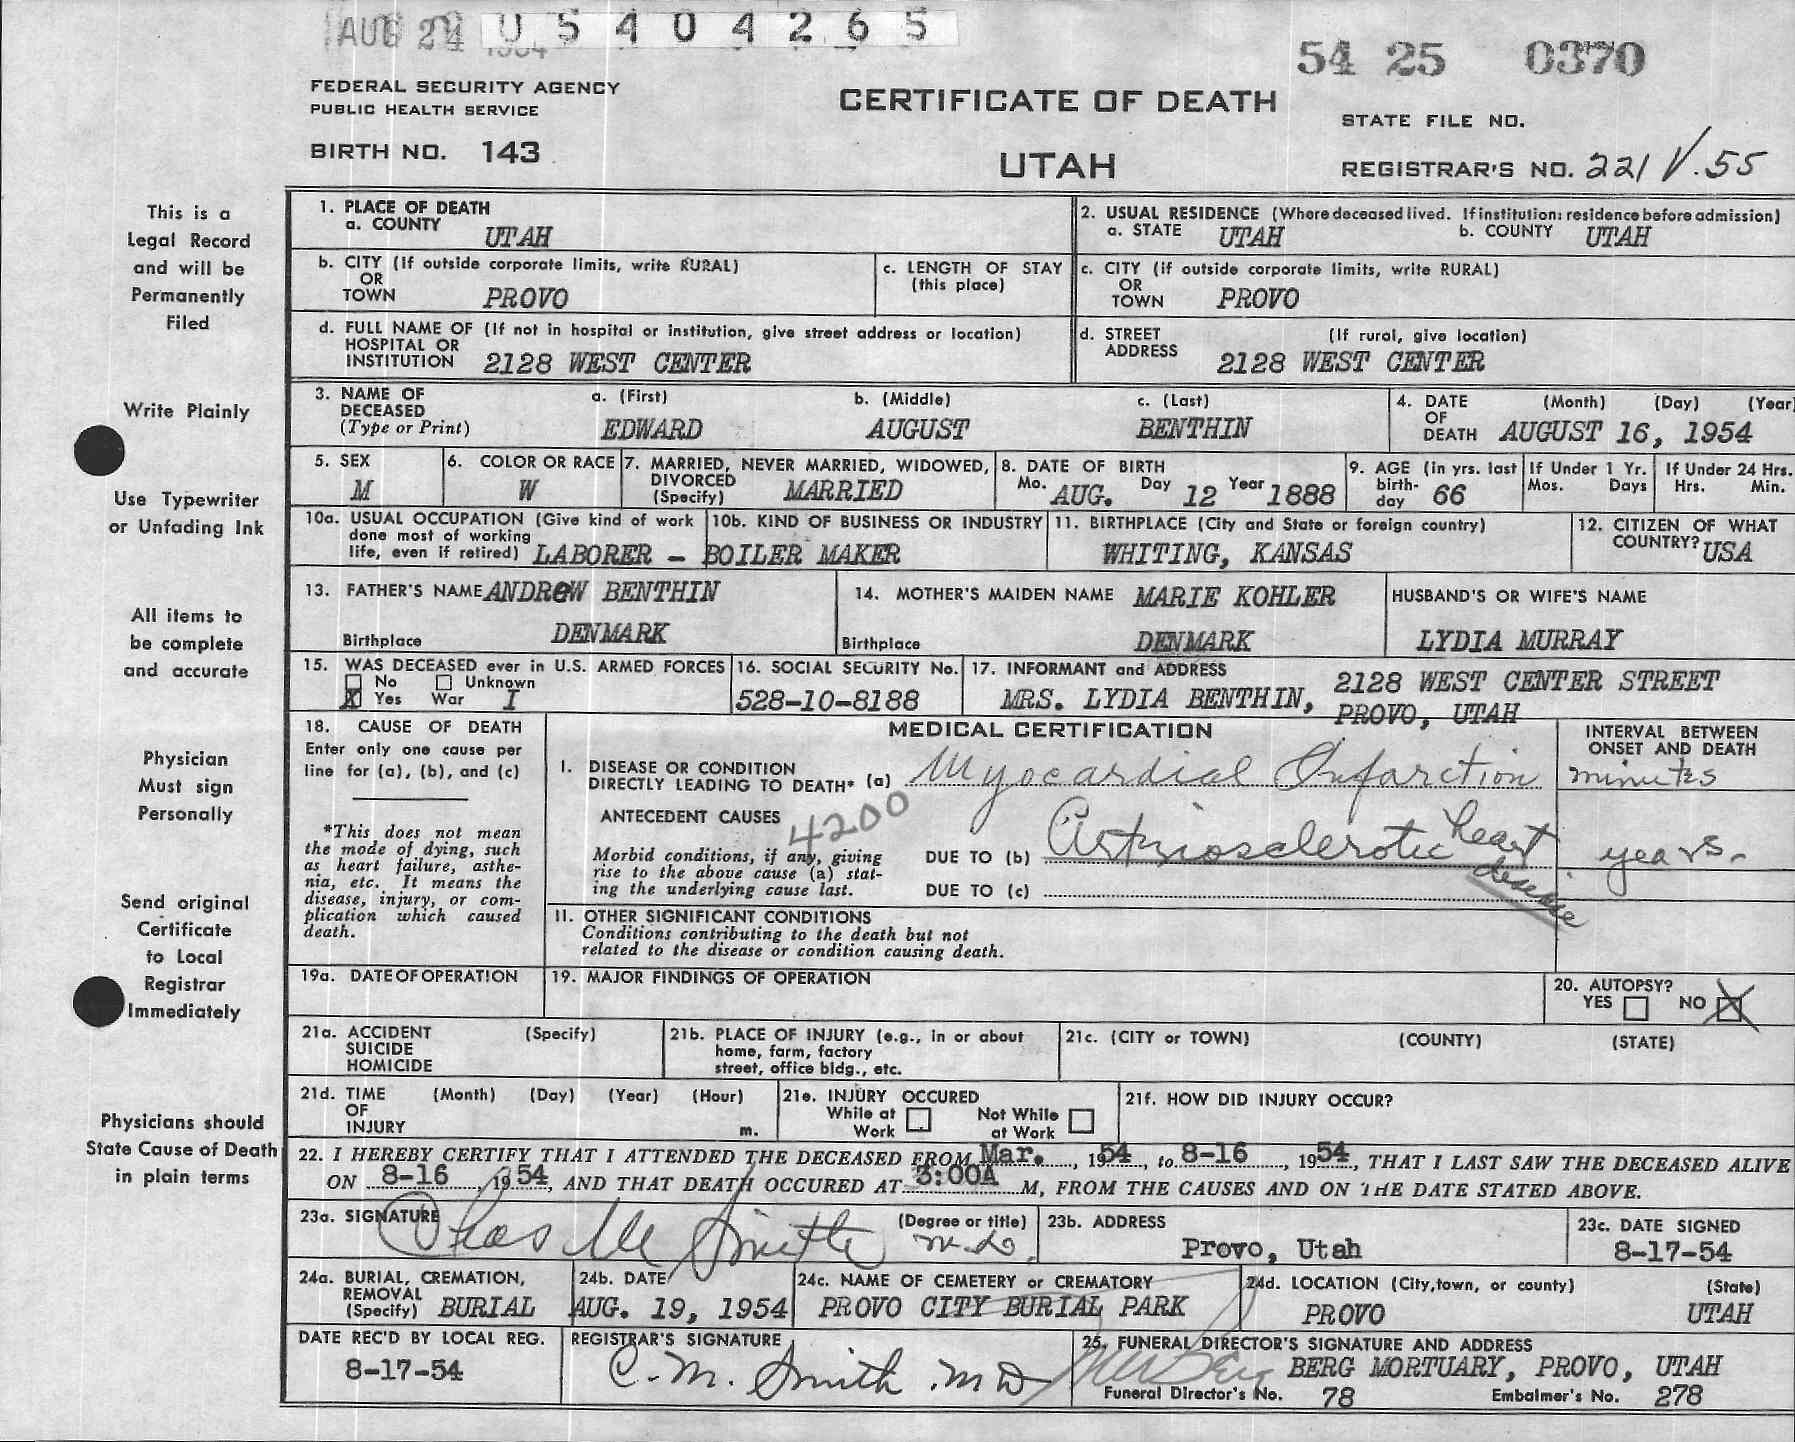 AUG 24 1954 U 5 4 0 4 2 6 5
54 25 0370
FEDERAL SECURITY AGENCY
PUBLIC HEALTH SERVICE
BIRTH NO. 143
CERTIFICATE OF DEATH
UTAH
STATE FILE NO.
REGISTRAR'S NO. 221 V.55
This is a
Legal Record
and will be
Permanently
Filed
Write Plainly
Use Typewriter
or Unfading Ink
All items to
be complete
and accurate
Physician
Must sign
Personally
Send original
Certificate
to Local
Registrar
Immediately
Physicians should
State Cause of Death
in plain terms
1. PLACE OF DEATH
a. COUNTY UTAH
2. USUAL RESIDENCE (Where deceased lived. If institution: residence before admission)
a. STATE UTAH b. COUNTY UTAH
b. CITY (If outside corporate limits, write RURAL)
OR
TOWN PROVO
c. LENGTH OF STAY
(this place)
c. CITY (if outside corporate limits, write RURAL)
OR
TOWN PROVO
d. FULL NAME OF (If not in hospital or institution, give street address or location)
HOSPITAL OR
INSTITUTION 2128 WEST CENTER
d. STREET (If rural, give location)
ADDRESS 2128 WEST CENTER
3. NAME OF
DECEASED
(Type or Print)
a. (First) b. (Middle) c. (Last)
EDWARD AUGUST BENTHIN
4. DATE (Month) (Day) (Year)
OF
DEATH AUGUST 16, 1954
5. SEX
M
6. COLOR OR RACE
W
7. MARRIED, NEVER MARRIED, WIDOWED,
DIVORCED
(Specify) MARRIED
8. DATE OF BIRTH
Mo. AUG. Day 12 Year 1888
9. AGE (in yrs. last
birth-
day 66
If Under 1 Yr.
Mos. Days
If Under 24 Hrs.
Hrs. Min.
10a. USUAL OCCUPATION (Give kind of work
done most of working
life, even if retired) LABORER -
10b. KIND OF BUSINESS OR INDUSTRY
BOILER MAKER
11. BIRTHPLACE (City and State or foreign country)
WHITING, KANSAS
12. CITIZEN OF WHAT
COUNTRY? USA
13. FATHER'S NAME ANDREW BENTHIN
Birthplace DENMARK
14. MOTHER'S MAIDEN NAME MARIE KOHLER
Birthplace DENMARK
HUSBAND'S OR WIFE'S NAME
LYDIA MURRAY
15. WAS DECEASED ever in U.S. ARMED FORCES
No Unknown
X Yes War I
16. SOCIAL SECURITY No.
528-10-8188
17. INFORMANT and ADDRESS
MRS. LYDIA BENTHIN, 2128 WEST CENTER STREET
PROVO, UTAH
18. CAUSE OF DEATH
Enter only one cause per
line for (a), (b), and (c)
*This does not mean
the mode of dying, such
as heart failure, asthe-
nia, etc. It means the
disease, injury, or com-
plication which caused
death.
MEDICAL CERTIFICATION
INTERVAL BETWEEN
ONSET AND DEATH
I. DISEASE OR CONDITION
DIRECTLY LEADING TO DEATH* (a) Myocardial Infarction minutes
ANTECEDENT CAUSES 4200
Morbid conditions, if any, giving
rise to the above cause (a) stat-
ing the underlying cause last.
DUE TO (b) Arteriosclerotic heart disease years.
DUE TO (c)
II. OTHER SIGNIFICANT CONDITIONS
Conditions contributing to the death but not
related to the disease or condition causing death.
19a. DATE OF OPERATION
19. MAJOR FINDINGS OF OPERATION
20. AUTOPSY?
YES NO X
21a. ACCIDENT (Specify)
SUICIDE
HOMICIDE
21b. PLACE OF INJURY (e.g., in or about
home, farm, factory
street, office bldg., etc.
21c. (CITY or TOWN) (COUNTY) (STATE)
21d. TIME (Month) (Day) (Year) (Hour)
OF
INJURY m.
21e. INJURY OCCURED
While at Work Not While at Work
21f. HOW DID INJURY OCCUR?
22. I HEREBY CERTIFY THAT I ATTENDED THE DECEASED FROM Mar. , 1954, to 8-16 , 1954, THAT I LAST SAW THE DECEASED ALIVE
ON 8-16 , 1954, AND THAT DEATH OCCURED AT 3:00A M, FROM THE CAUSES AND ON THE DATE STATED ABOVE.
23a. SIGNATURE (Degree or title)
Chas M Smith M.D.
23b. ADDRESS
Provo, Utah
23c. DATE SIGNED
8-17-54
24a. BURIAL, CREMATION,
REMOVAL
(Specify) BURIAL
24b. DATE
AUG. 19, 1954
24c. NAME OF CEMETERY or CREMATORY
PROVO CITY BURIAL PARK
24d. LOCATION (City, town, or county) (State)
PROVO UTAH
DATE REC'D BY LOCAL REG.
8-17-54
REGISTRAR'S SIGNATURE
C. M. Smith M D
25. FUNERAL DIRECTOR'S SIGNATURE AND ADDRESS
Berg BERG MORTUARY, PROVO, UTAH
Funeral Director's No. 78 Embalmer's No. 278